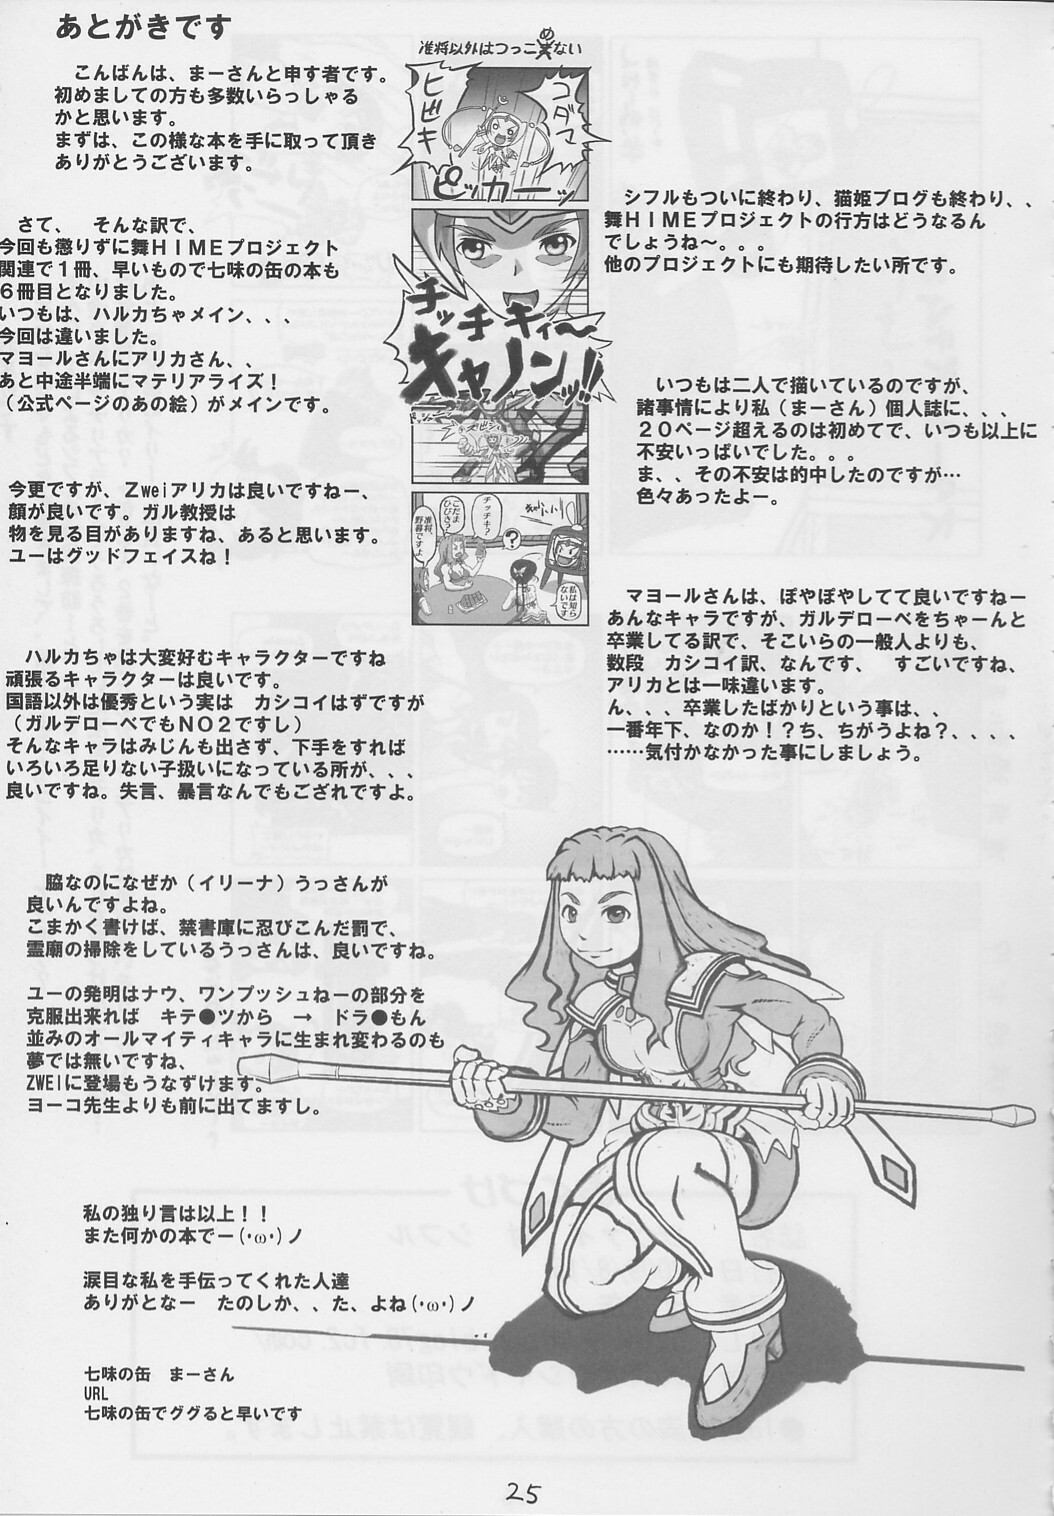 あとがきです
こんばんは、まーさんと申す者です。
初めましての方も多数いらっしゃる
かと思います。
まずは、この様な本を手に取って頂き
ありがとうございます。
さて、　そんな訳で、
今回も懲りずに舞ＨＩＭＥプロジェクト
関連で１冊、早いもので七味の缶の本も
６冊目となりました。
いつもは、ハルカちゃメイン、、、
今回は違いました。
マヨールさんにアリカさん、、
あと中途半端にマテリアライズ！
（公式ページのあの絵）がメインです。
今更ですが、Ｚｗｅｉアリカは良いですねー、
顔が良いです。ガル教授は
物を見る目がありますね、あると思います。
ユーはグッドフェイスね！
ハルカちゃは大変好むキャラクターですね
頑張るキャラクターは良いです。
国語以外は優秀という実は　カシコイはずですが
（ガルデローベでもＮＯ２ですし）
そんなキャラはみじんも出さず、下手をすれば
いろいろ足りない子扱いになっている所が、、、
良いですね。失言、暴言なんでもござれですよ。
脇なのになぜか（イリーナ）うっさんが
良いんですよね。
こまかく書けば、禁書庫に忍びこんだ罰で、
霊廟の掃除をしているうっさんは、良いですね。
ユーの発明はナウ、ワンプッシュねーの部分を
克服出来れば　キテ●ツから　→　ドラ●もん
並みのオールマイティキャラに生まれ変わるのも
夢では無いですね、
ZWEIに登場もうなずけます。
ヨーコ先生よりも前に出てますし。
私の独り言は以上！！
また何かの本でー(･ω･)ノ
涙目な私を手伝ってくれた人達
ありがとなー　たのしか、、た、よね(･ω･)ノ
七味の缶　まーさん
URL
七味の缶でググると早いです
准将以外はつっこめない
コダマ
ヒビキ
ピッカーッ
チッチキィ〜
キャノンッ!!
ドッシューン
チッチキ？
こだま
ひびき？
准将、
野暮ですよ
？
私は知ら
ないです
シフルもついに終わり、猫姫ブログも終わり、、
舞ＨＩＭＥプロジェクトの行方はどうなるん
でしょうね〜。。。
他のプロジェクトにも期待したい所です。
いつもは二人で描いているのですが、
諸事情により私（まーさん）個人誌に、、、
２０ページ超えるのは初めてで、いつも以上に
不安いっぱいでした。。。
ま、、その不安は的中したのですが…
色々あったよー。
マヨールさんは、ぽやぽやしてて良いですねー
あんなキャラですが、ガルデローベをちゃーんと
卒業してる訳で、そこいらの一般人よりも、
数段　カシコイ訳、なんです、　すごいですね、
アリカとは一味違います。
ん、、、卒業したばかりという事は、、
一番年下、なのか！？ち、ちがうよね？、、、、
……気付かなかった事にしましょう。
25